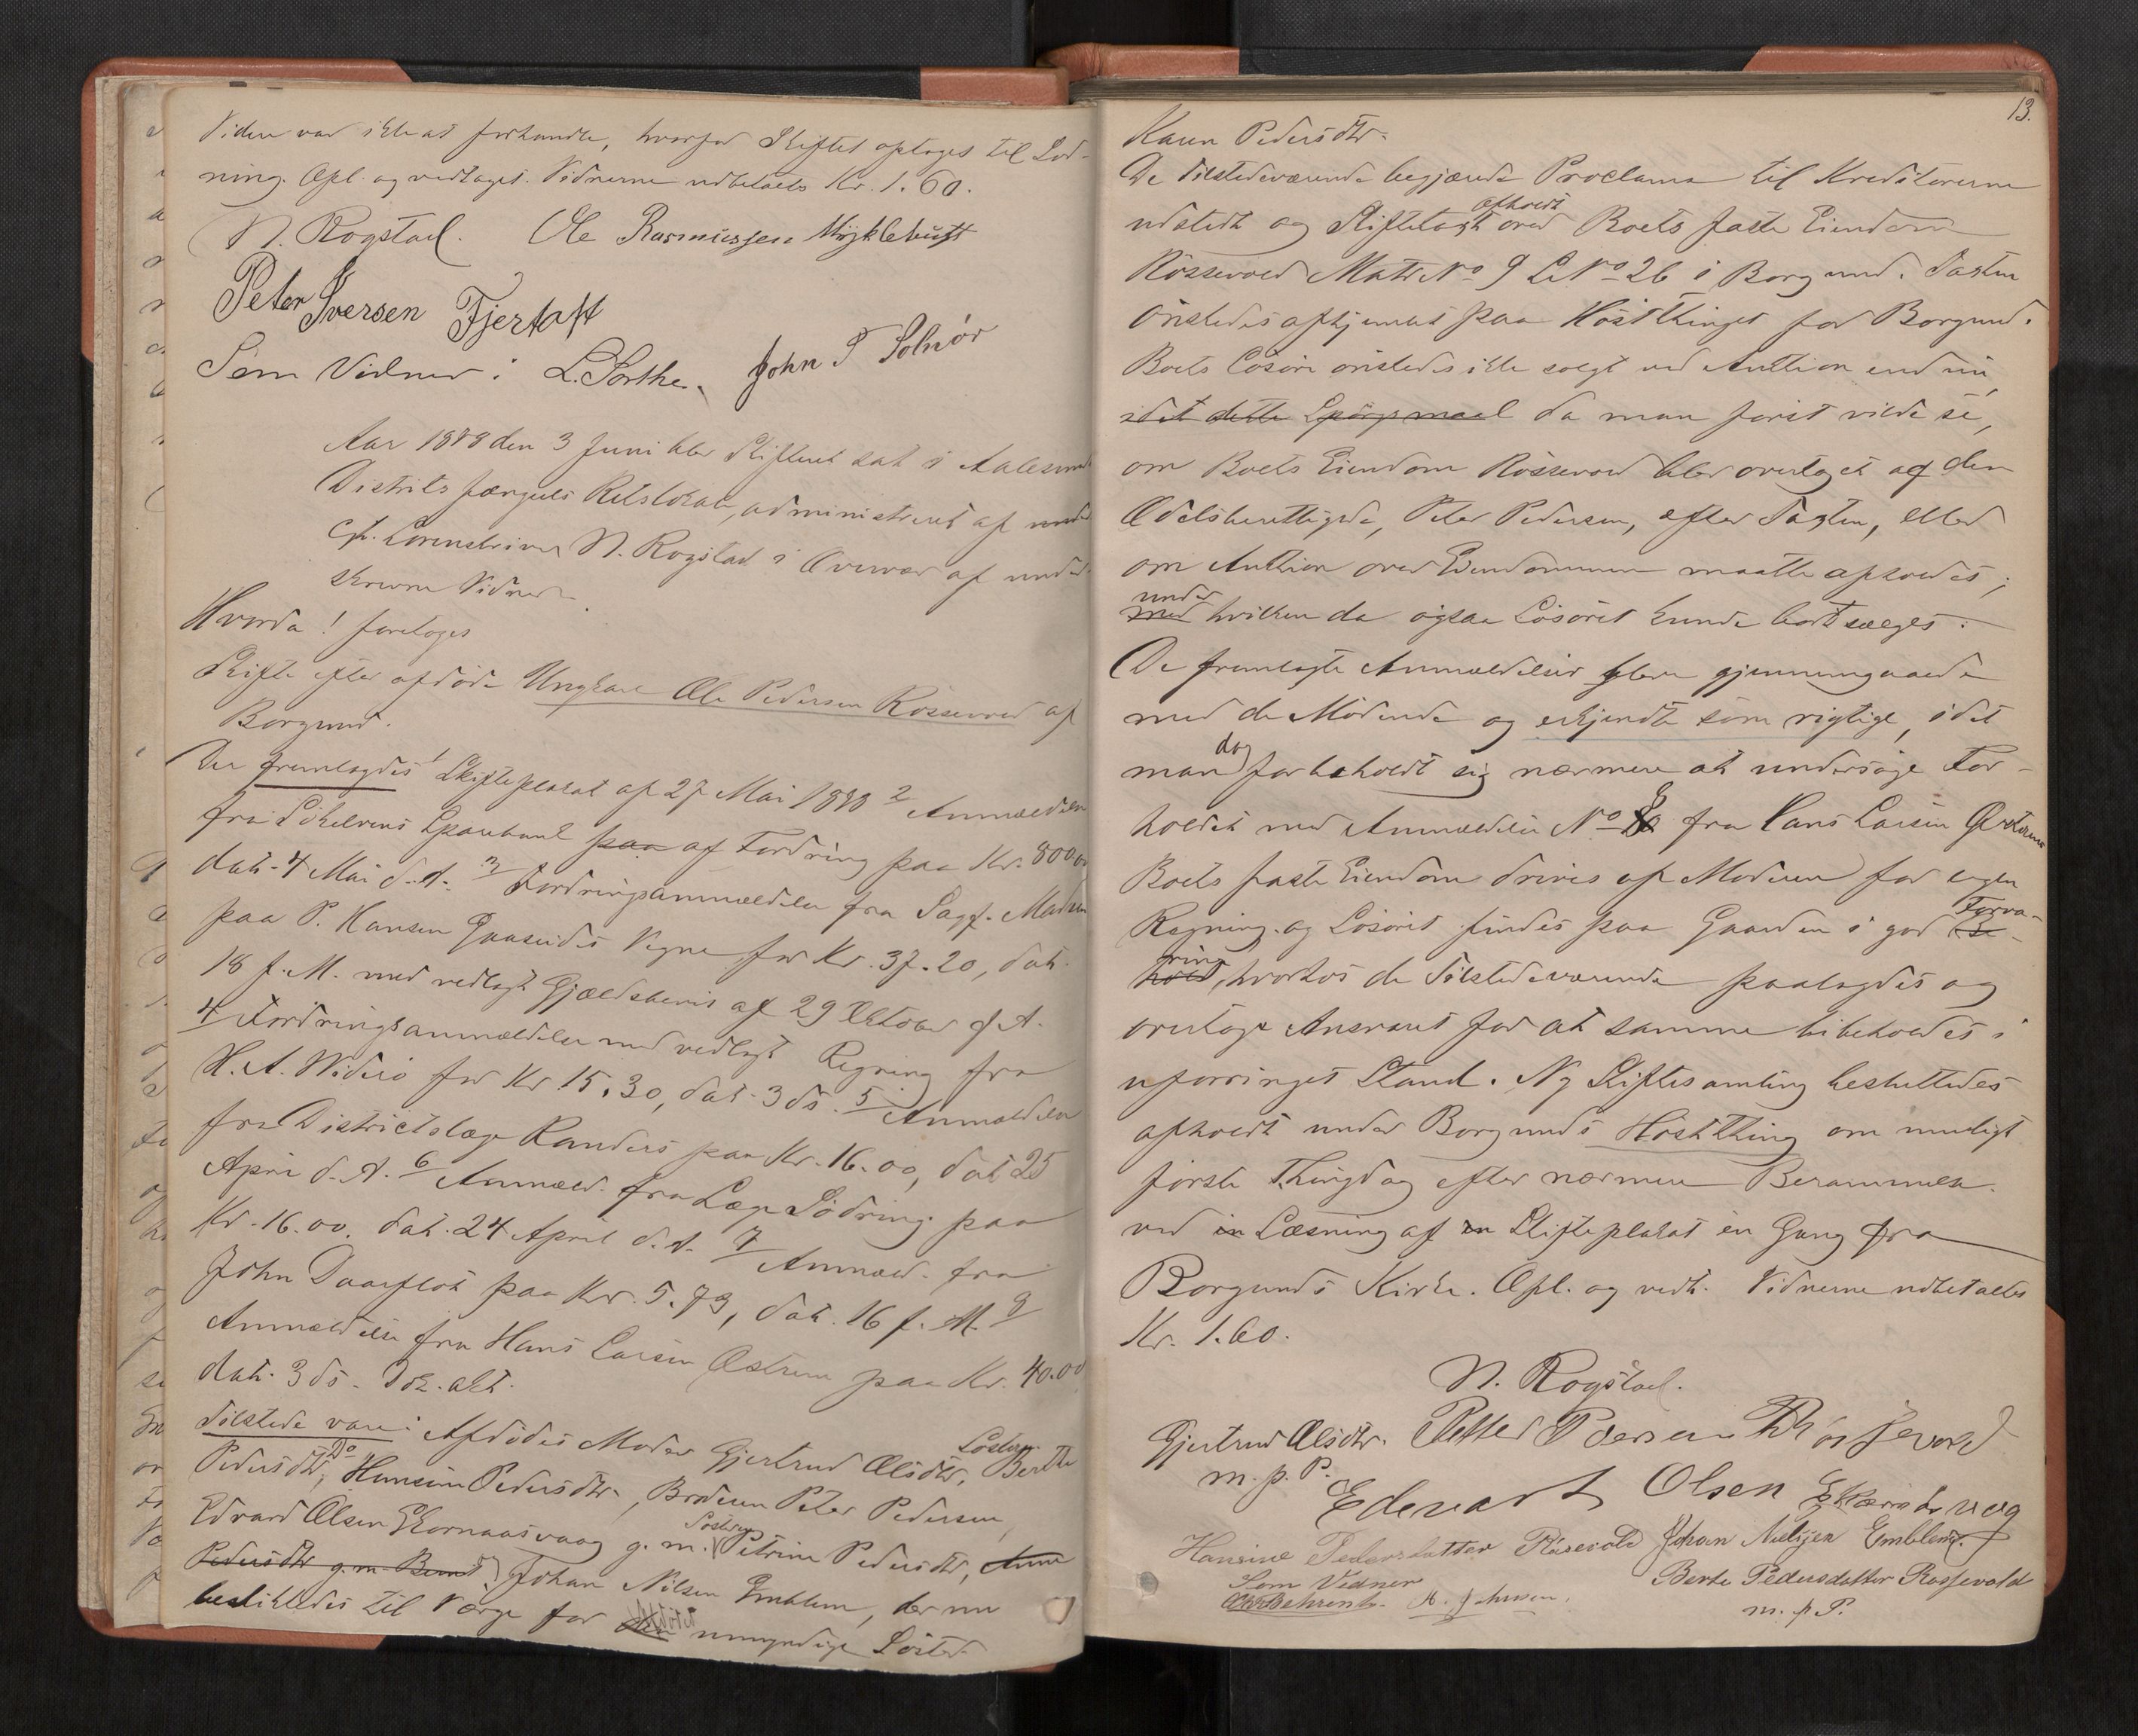 Videre var ikke at forhandle, hvorfor Skiftet optoges til Lod-
ning. Opl. og vedtaget. Vidnerne udbetaltes Kr. 1.60.
N. Rogstad. Ole Rasmussen Myklebust
Peter Iversen Fjertoft
Som Vidner: L. Sorthe. John P Solnör
Aar 1878 den 3 Juni blev Skifteret sat i Aalesunds
Distrikts fængsels Retslokale, administreret af under
Cst. Sorenskriver N. Rogstad i Overvær af under-
skrevne Vidner.
Hvorda! foretoges
Skifte efter afdöde Ungkarl Ole Pedersen Rössevold af
Borgund.
Der fremlagdes 1/ Skifteplakat af 27 Mai 1878 2/ Anmeldelse
fra Sökelvens Sparebank paa af Fordring paa Kr. 800.00
dat. 4 Mai d. A. 3/ Fordringsanmeldelse fra Sagf. Madsen
paa P. Hansen Gaaseides Vegne for Kr. 37.20, dat.
18 f. M. med vedlagt Gjældsbevis af 29 Oktober f A.
4/ Fordringsanmeldelse med vedlagt Regning fra
H. A. Widerö for Kr 15.30, dat. 3 ds. 5/ Anmeldelse
fra Districtslæge Randers paa Kr. 16.00, dat 25
April d. A. 6/ Anmeld. fra Læge Södring paa
Kr. 16.00. dat. 24 April d. A. 7/ Anmeld. fra
John Daaeflot paa Kr. 5.73, dat. 16 f. M. 8/
Anmeldelse fra Hans Larsen Östrem paa Kr. 40.00
dat. 3 ds. Dok. alt.
Tilstede vare: Afdödes Moder Gjertrud Olsdtr, Söstren Berthe
Pedersdtr, Do Hansine Pedersdtr, Broderen Peter Pedersen,
Edvard Olsen Ekornaasvaag g. m. Söstren Petrine Pedersdtr, Anne
Pedersdtr g. m. Bernt, Johan Nilsen Emblem, der nu
beskikkedes til Værge for den Afdödes umyndige Söster
13.
Karen Pedersdtr.
De Tilstedeværende begjærede Proclama til Kreditorerne
udstedt og Skiftetaxt afholdt over Boets faste Eiendom
Rössevold Matr No 9 L No 26 i Borgund. Taxten
önskedes afhjemlet paa Höstthinget for Borgund.
Boets Lösöre önskedes ikke solgt ved Auktion end nu,
idet dette Spörgsmaal da man först vilde se,
om Boets Eiendom Rössevold blev overtaget af den
Odelsberettigede, Peter Pedersen, efter Taxten, eller
om Auktion over Eiendommen maatte afholdes;
med under hvilken da ogsaa Lösöret kunde bortsælges.
De fremlagte Anmeldelser bleve gjennemgaaede
med de Mödende og erkjendte som rigtige, idet
man dog forbeholdt sig nærmere at undersöge For-
holdet med Anmeldelse No 8 fra Hans Larsen Östrem
Boets faste Eiendom drives af Moderen for egen
Regning. og Lösöret findes paa Gaarden i god Be- Forva-
hold, ring hvorhos de Tilstedeværende paalagdes og
overtoge Ansvaret for at samme bibeholdes i
uforringet Stand. Ny Skiftesamling besluttedes
afholdt under Borgunds Höstthing om muligt
förste Thingdag efter nærmere Berammelse.
ved in Læsning af en Skifteplakat en Gang fra
Borgunds Kirke. Opl. og vedt. Vidnerne udbetaltes
Kr. 1.60.
N. Rogstad.
Gjertrud Olsdtr. Petter Pedersen Rössevold
m. p. P.
Edevart Olsen
Hansine Pedersdatter Rösevold Johan Nielsen Emblem.
Som Vidner Berte Pedersdatter Rossevold
m. p P.